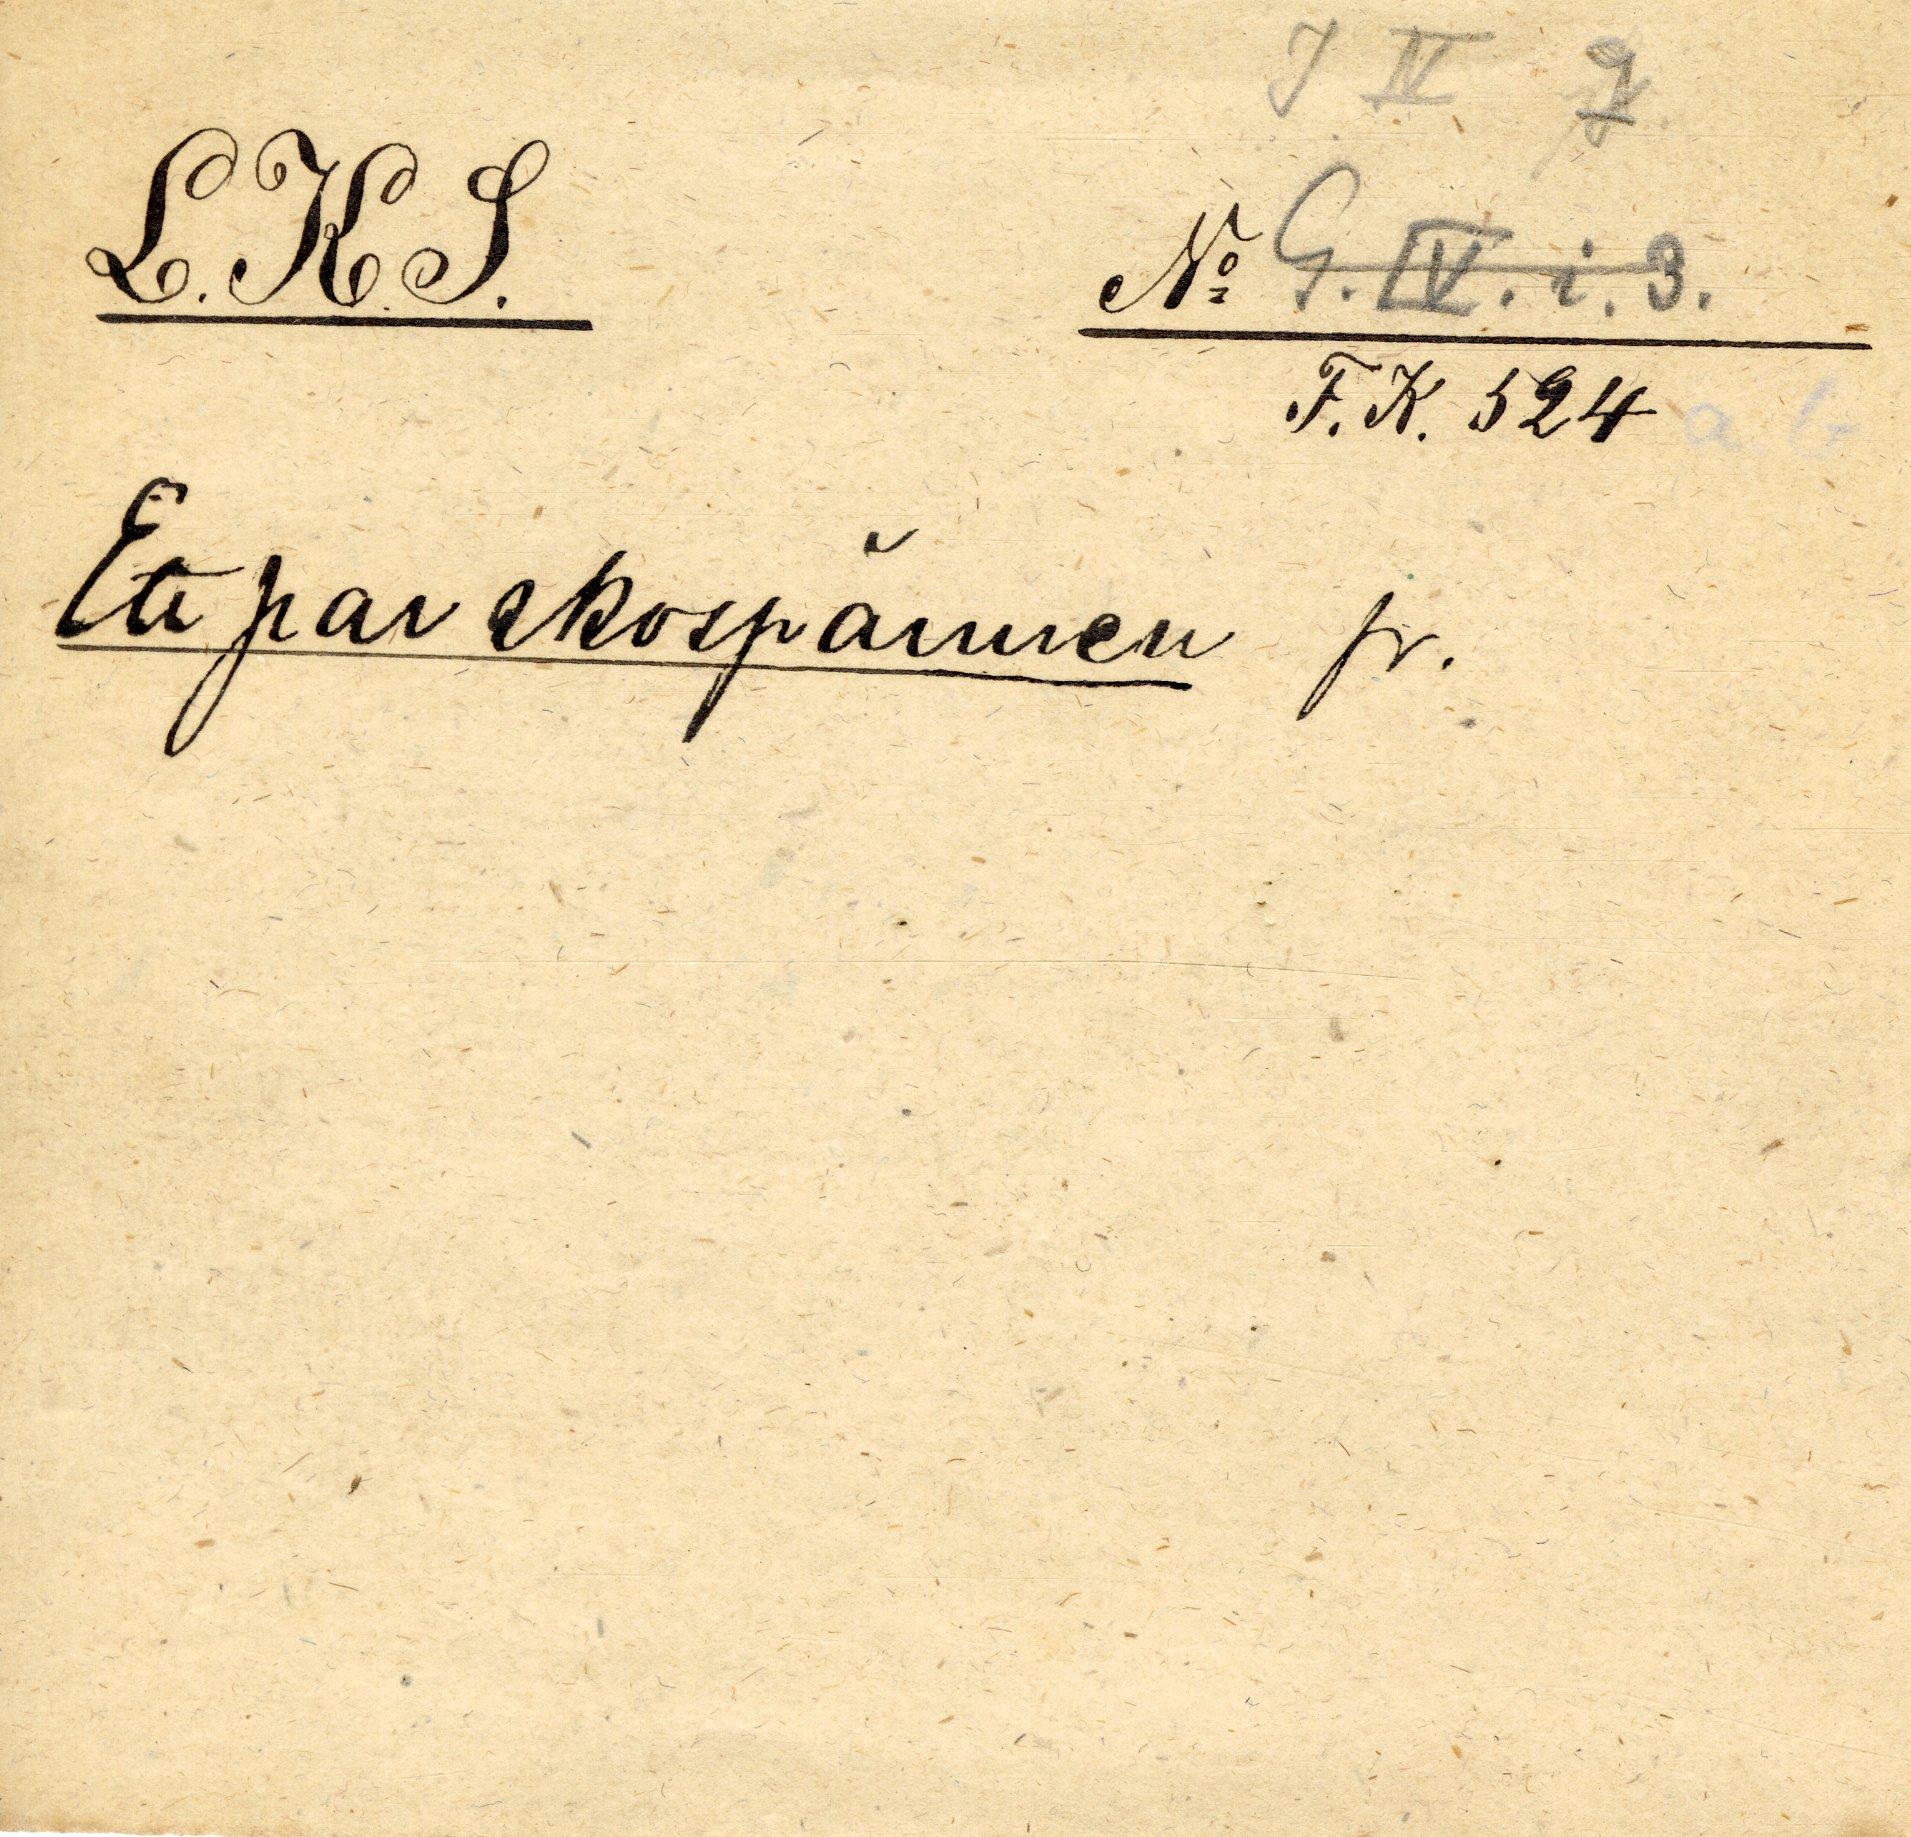 J IV g
L.K.S.
No G.IV.i.3.
F.K. 524 a b
Ett par skospännen fr.